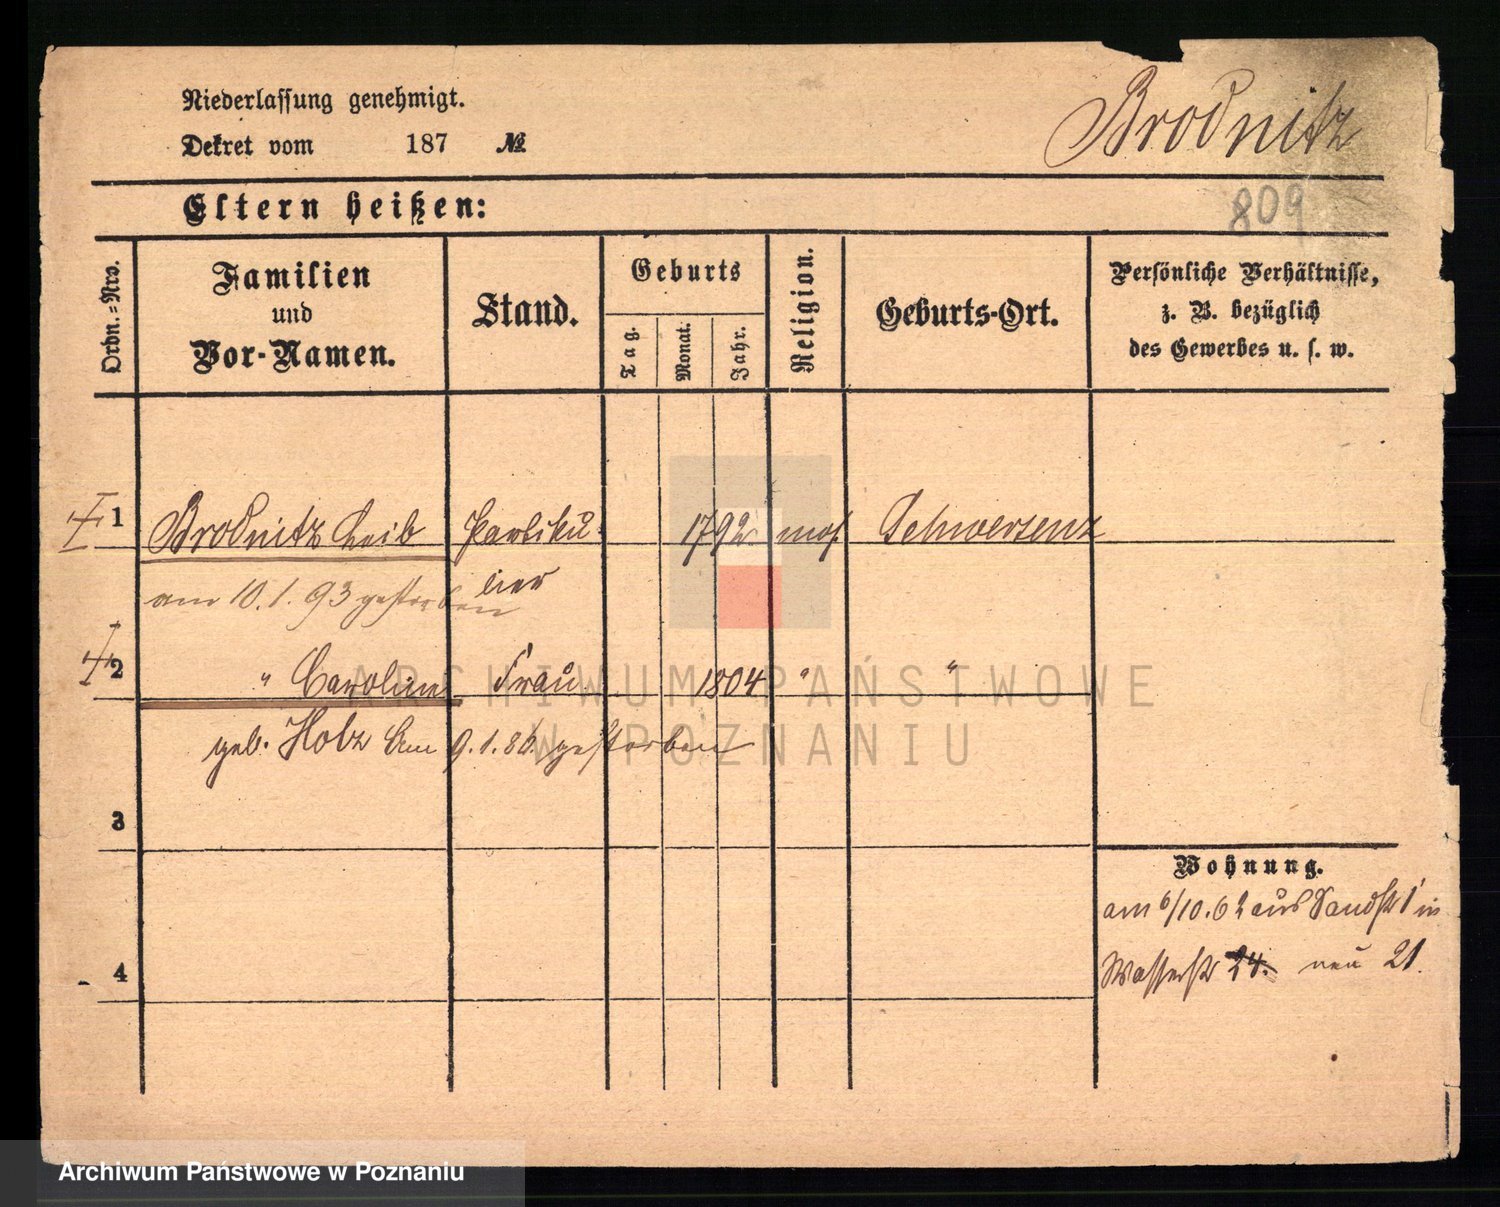 Niederlassung genehmigt.
Dekret vom 187 №
Brodnitz
809
Eltern heißen:
Ordn.=Nro.
Familien und Vor-Namen.
Stand.
Geburts
Tag.
Monat.
Jahr.
Religion.
Geburts-Ort.
Persönliche Verhältnisse,
z. B. bezüglich
des Gewerbes u. s. w.
1 Brodnitz Leib Partiku 1792 mos. Schwersenz
lier
am 10.1.93 gestorben
2 " Caroline Frau 1804 " "
geb. Holz Am 9.1.86 gestorben
3
Wohnung.
am 6/10.62 aus Sandstr 1 in
4
Wasserstr 24. neu 21.
ARCHIWUM PAŃSTWOWE
W POZNANIU
Archiwum Państwowe w Poznaniu